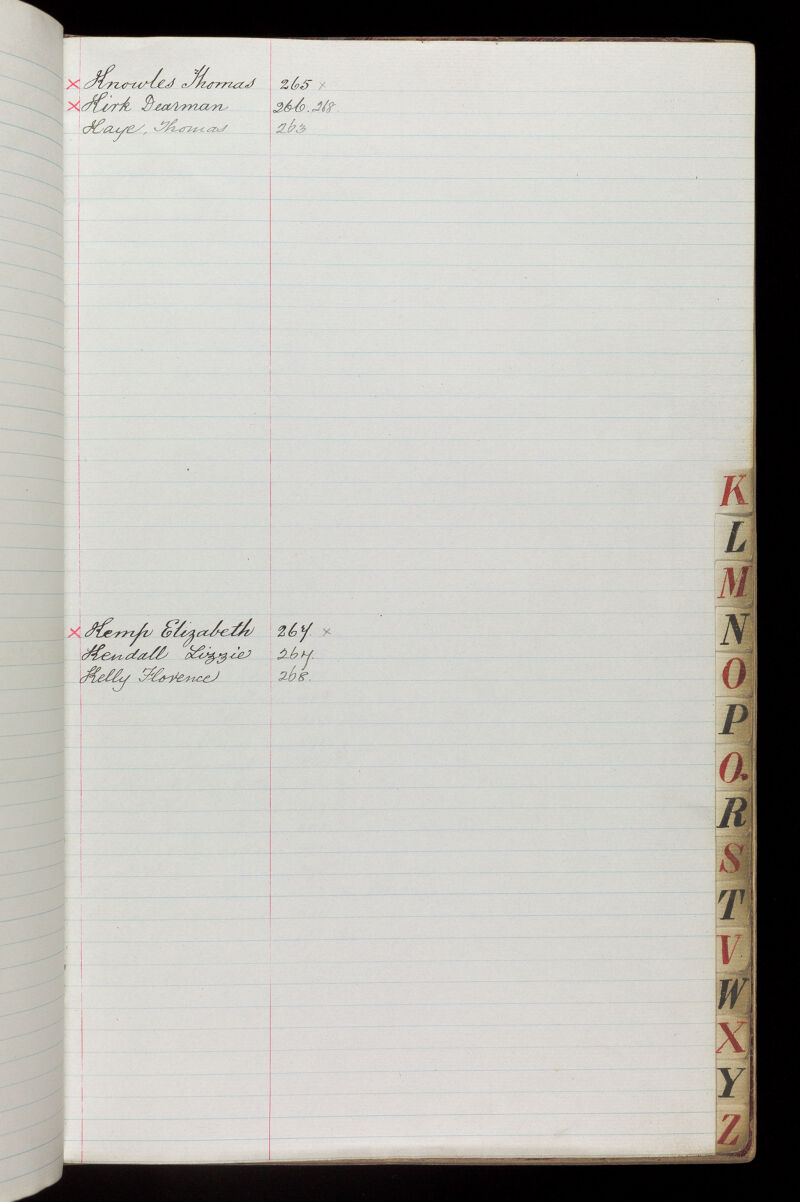 × Knowles Thomas 265 ×
× Kirk Dearman 266. 268
Kaye, Thomas 263
× Kemp Elizabeth 264 ×
Kendall Lizzie 264
Kelly Florence 268.
K
L
M
N
O
P
Q.
R
S
T
V
W
X
Y
Z